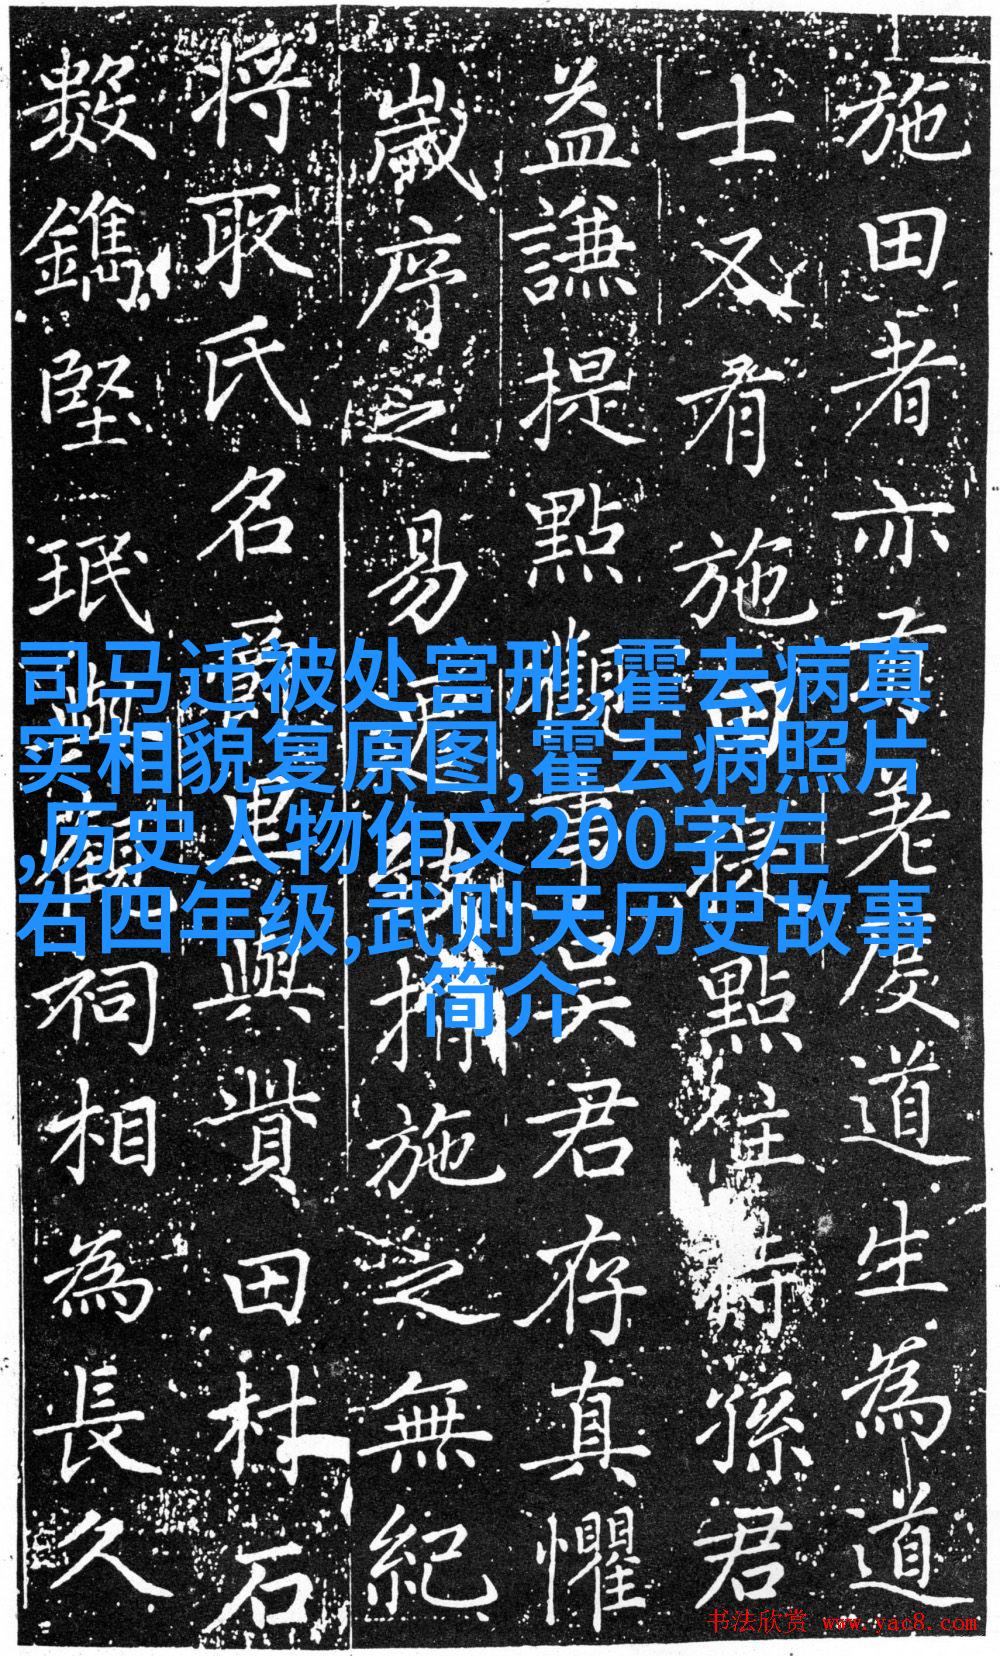 施田者亦有老废道生為道
士又有施 點往侍孫君
益謙提點 事吴君存真懼
歲序之易 施之無紀
将取氏名 里與貲田社石
数鐫堅珉 祠相為長久
司马迁被处宫刑,霍去病真
实相貌复原图,霍去病照片
,历史人物作文200字左
右四年级,武则天历史故事
简介
书法欣赏 www.yac8.com